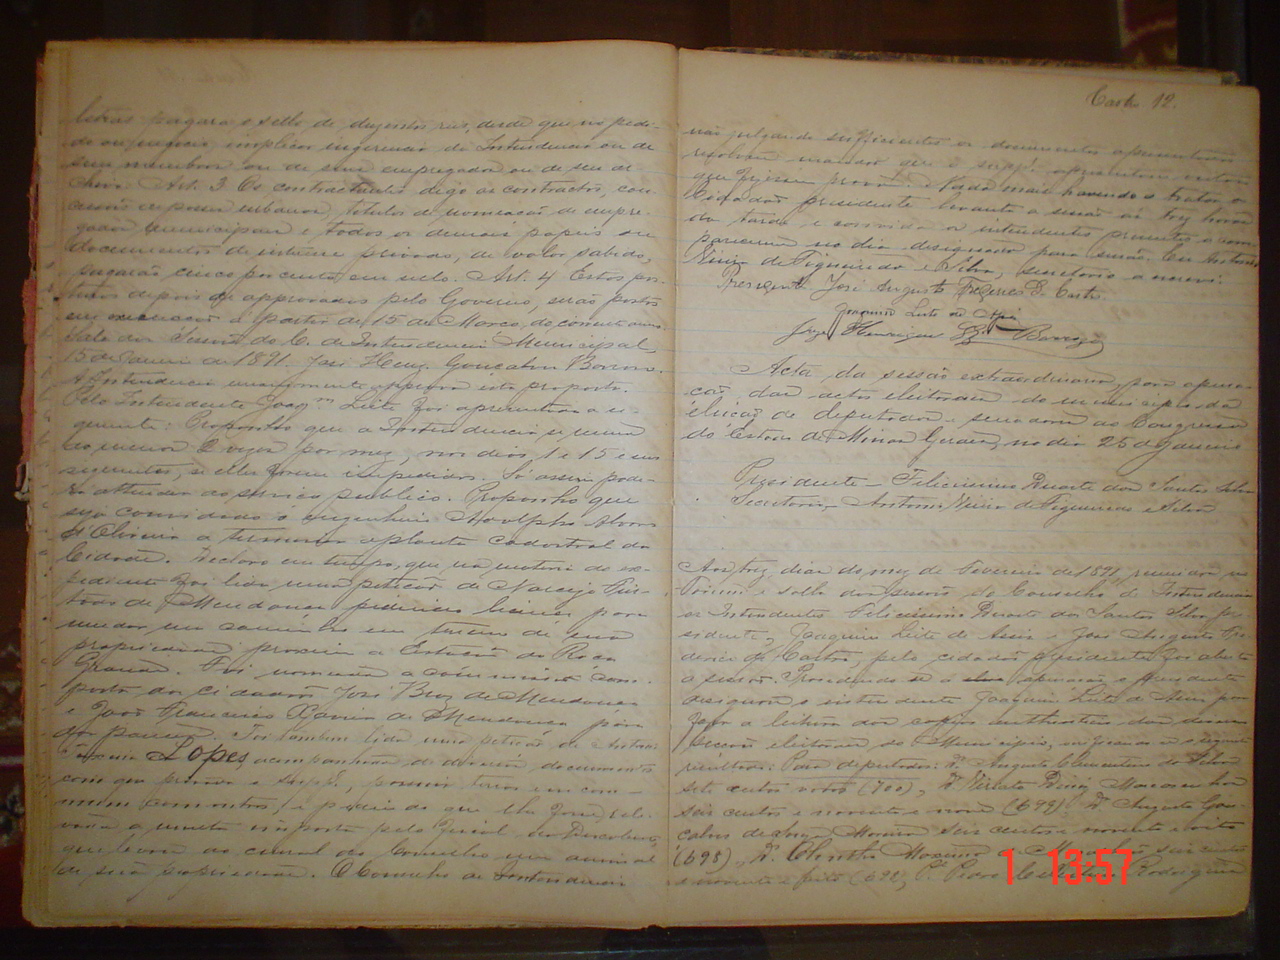 letras pagará o sello de duzentos reis, desde que no pedi-
do ou negocio, implicar ingerencia da Intendencia ou de
seus membros ou de seus empregados ou de seu ar
chivo. Art. 3. Os contractantes digo os contractos, con-
cessões de posses urbanas, titulos de nomeação de empre-
gados municipaes e todos os demais papeis ou
documentos de interesse privado, de valor sabido,
pagarão cinco por cento em sello. Art. 4 Estas pos-
turas depois de approvadas pelo Governo, serão postas
em execução a partir de 15 de Março, do corrente anno
Sala das Sessões do C. de Intendencia Municipal,
15 de Janeiro de 1891. José Henq. Gonçalves
A Intendencia unanimemente approva esta proposta.
Pelo Intendente Joaqm Leite foi apresentada a se-
guinte: Proponho que a Intendencia se reuna
ao menos 2 vezes por mez, nos dias 1 e 15 e nos
seguintes, se elles forem impedidos. Só assim pode-
rá attender ao serviço publico. Proponho que
seja convidado o engenheiro Adolpho Alves
d'Oliveira a terminar a planta cadastral da
Cidade. Declaro em tempo, que na materia do ex-
pediente foi lida uma petição de
de Mendonça pedindo licença para
mudar um caminho em terreno de sua
propriedade proximo a Estação do Roça
Grande. Foi nomeada a commissão com-
posta dos cidadãos José Braz de Mendonça
e João Francisco Xavier de Mendonça para
dar parecer. Foi tambem lida uma petição de Antonio
Lopes, acompanhada de documentos
com que prova o suppe, possuir terras em com-
mum com outros, e pedindo que lhe fosse rele-
vada a multa imposta pelo fiscal do Descoberto,
que levou ao curral do Conselho um animal
de sua propriedade. O Conselho de Intendencia
12.
não julgando sufficientes os documentos apresentados
resolveu mandar que o suppe apresentem outros
que fizessem prova. E Nada mais havendo a tratar o
Cidadão presidente levanta a sessão as trez horas
da tarde e convida os intendentes presentes a com-
parecerem no dia designado para sessão. Eu Antonio
Vieira de Figueiredo e Silva, secretario a escrevi.
Presidente José Augusto de Castro.
Joaquim Leite de Assis
Henriques
Acta da sessão extraordinaria para apura-
ção das actas eleitoraes do municipio, da
eleição de deputados e senadores ao Congresso
do Estado de Minas Geraes, no dia 25 de Janeiro
Presidente – Felicissimo Duarte dos Santos Silva
Secretario, Antonio Vieira de Figueiredo e Silva
Aos trez dias do mez de Fevereiro de 1891, reunidos no
Forum e salla das sessões do Conselho de Intendencia
os Intendentes Felicissimo Duarte dos Santos Silva pre-
sidente, Joaquim Leite de Assis e José Augusto Fre-
derico de Castro, pelo cidadão presidente foi aberta
a sessão. Procedendo-se a apuração o presidente
designou o intendente Joaquim Leite de Assis para
fazer a leitura das copias authenticas das diversas
secções eleitoraes do Municipio, verificou-se o seguinte
resultado: Para deputados: Dr. Augusto Clementino da Silva
sete centos votos (700), Dr. Viriato Diniz Mascarenhas
seis centos e noventa e nove (699) Dr. Augusto Gon-
çalves de Souza Moreira seis centos e noventa e oito
(698), Dr. Olyntho Maximo de Magalhães seis centos
e noventa e oito (698), P. Pedro Celestino Rodrigues
1 13:57